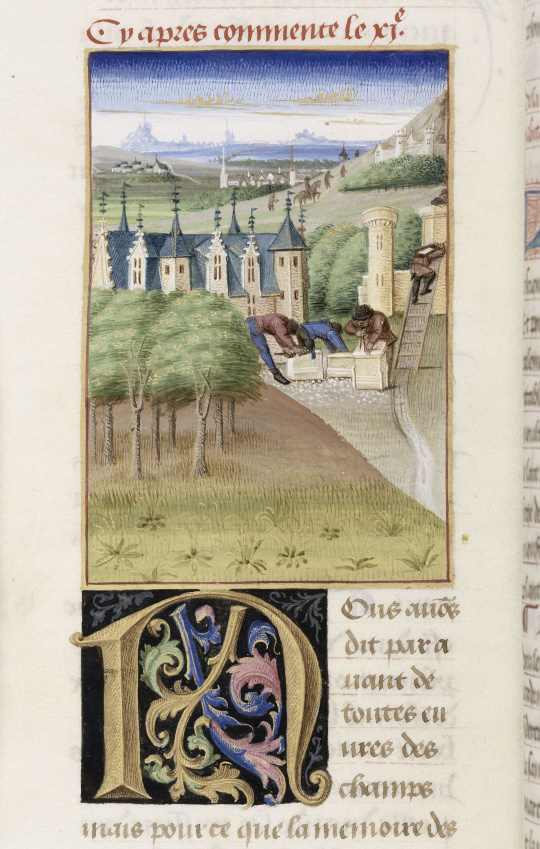 Cy apres commente le xje.
Nous auōs
dit par a
uant de
toutes eu
ures des
champs
mais pour ce que la memoire des